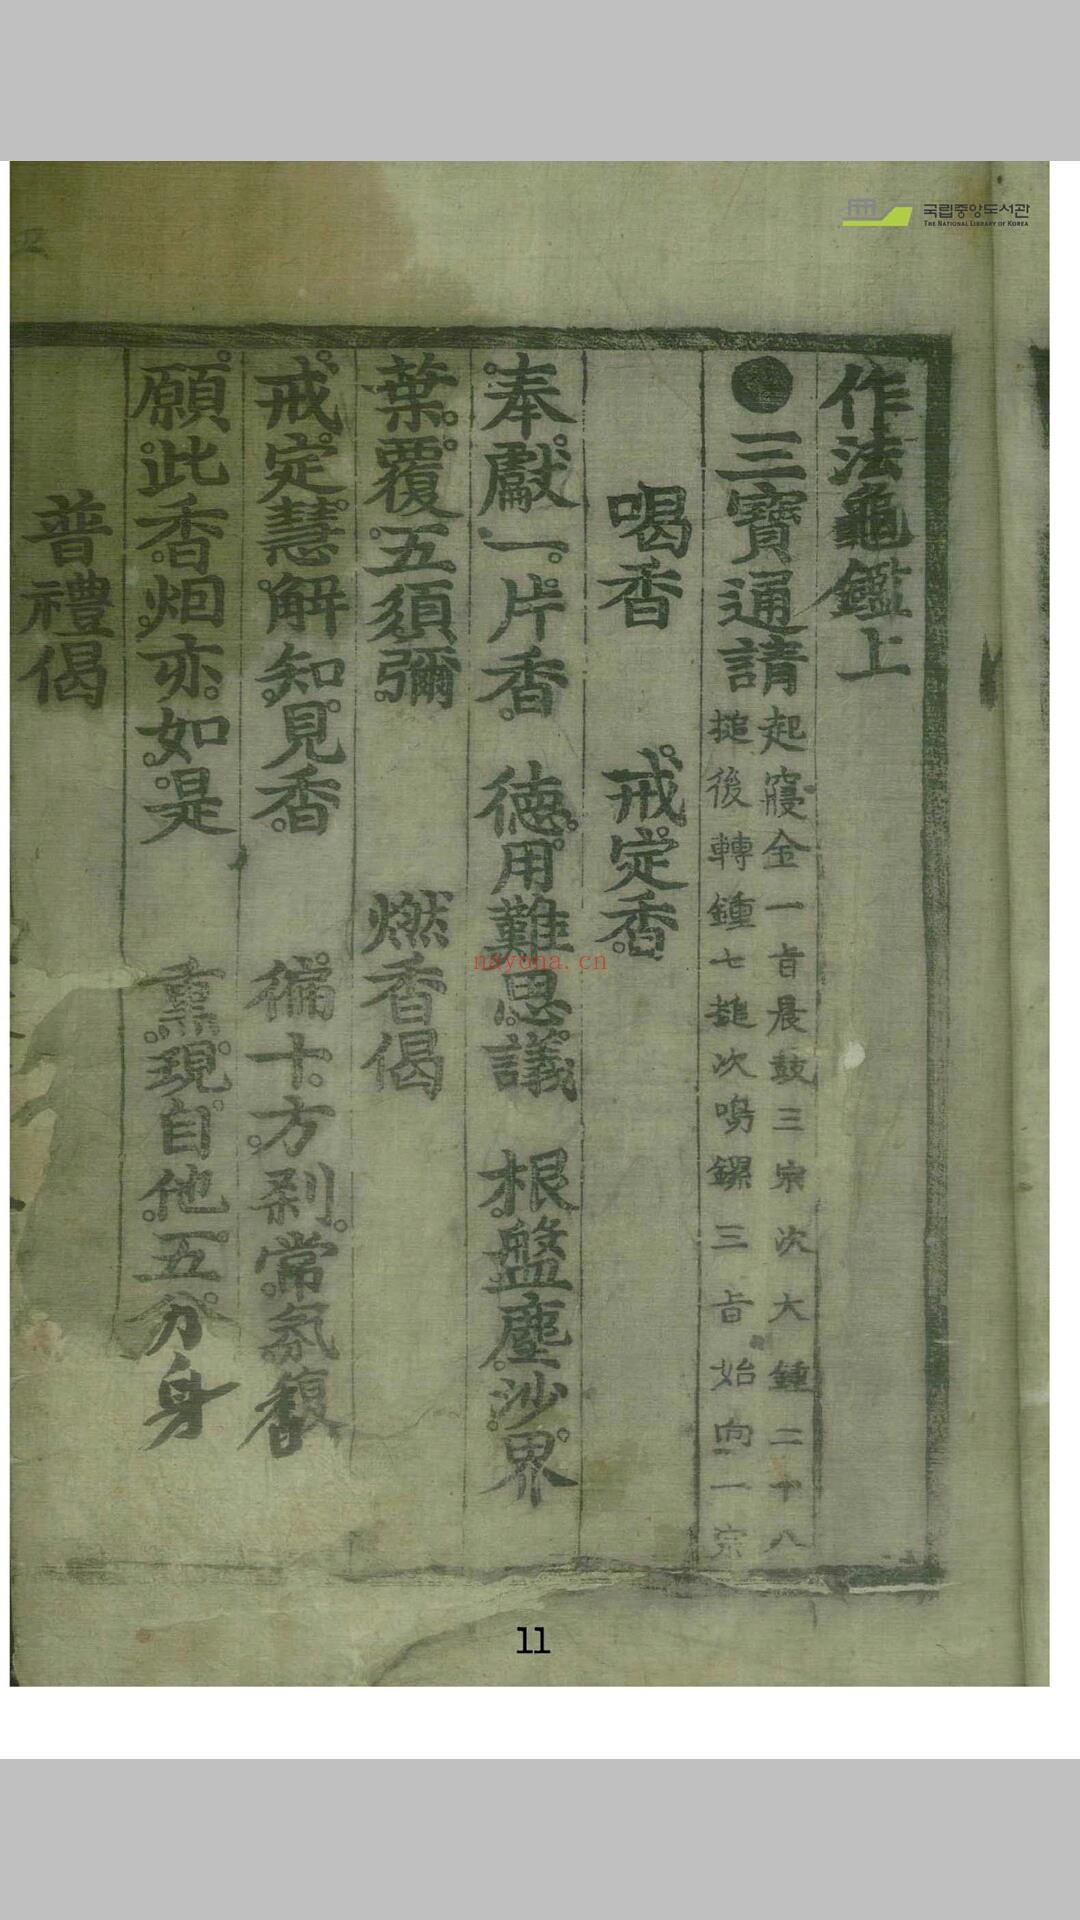 국립중앙도서관
THE NATIONAL LIBRARY OF KOREA
作法龜鑑上
●三寶通請
起寢金一旨晨鼓三宗次大鍾二十八
搥後轉鍾七搥次鳴鑼三旨始向一宗
喝香 戒定香
奉獻一片香 德用難思議 根盤塵沙界
葉覆五須彌 燃香偈
戒定慧解知見香 徧十方刹常氛馥
願此香烟亦如是 熏現自他五分身
普禮偈
nayona.cn
11